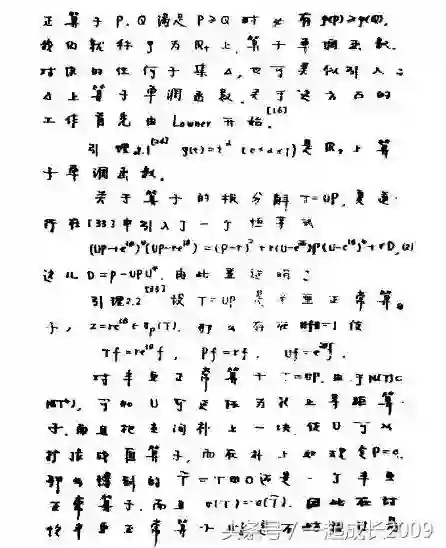 正算子 P、Q 满足 P≥Q 时必有 g(P)≥g(Q).
我们就称 g 为 R₊ 上算子单调函数.
对 的任何子集 Δ,也可类似引入
Δ上算子单调函数.关于这方面的
工作首先由 Lowner 开始.[16]
引理2.1[26] g(t)=t^α (0<α≤1)是 R₊ 上算
子单调函数.
关于算子的极分解 T=UP,夏道
行在[33]中引入了一个恒等式
(UP-re^{iθ})*(UP-re^{iθ})=(P-r)²+r(U-e^{iθ})*P(U-e^{iθ})+rD,(2)
这儿 D=P-UPU*.由此 证明:
引理2.2[33] 设 T=UP 是半亚正常算
子,z=re^{iθ}∈σp(T).那么存在 ‖f‖=1 使
Tf=re^{iθ}f, Pf=rf, Uf=e^{iθ}f.
对半亚正常算子 T=UP.由于N(T)⊂
N(T*),可知 U 可延拓为 上等距算
子.而且把空间补上一块,使 U 可以
扩 成酉算子,而在补上的 定 P=0.
那么得到的 T̃=T⊕0 还是一个半亚
正常算子.而且 σ(T)=σ(T̃).因此在讨
论半亚正常算子
头条号/一起成长2009